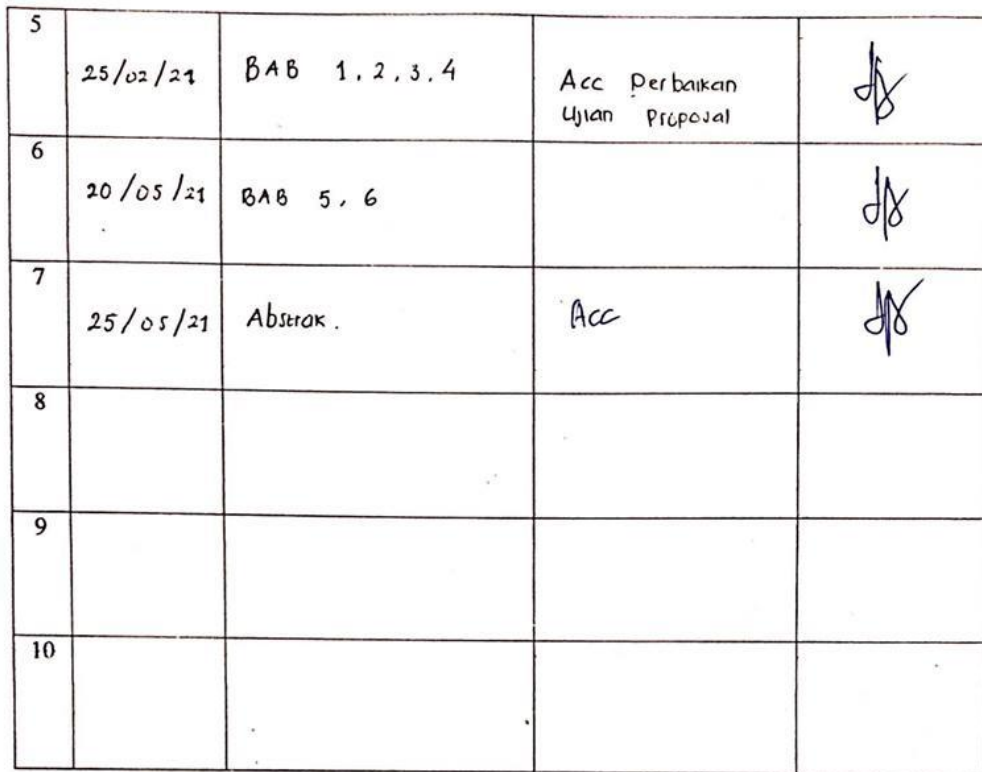 5
25/02/21
BAB 1, 2, 3, 4
Acc Perbaikan
Ujian Proposal
6
20/05/21
BAB 5, 6
7
25/05/21
Abstrak.
Acc
8
9
10